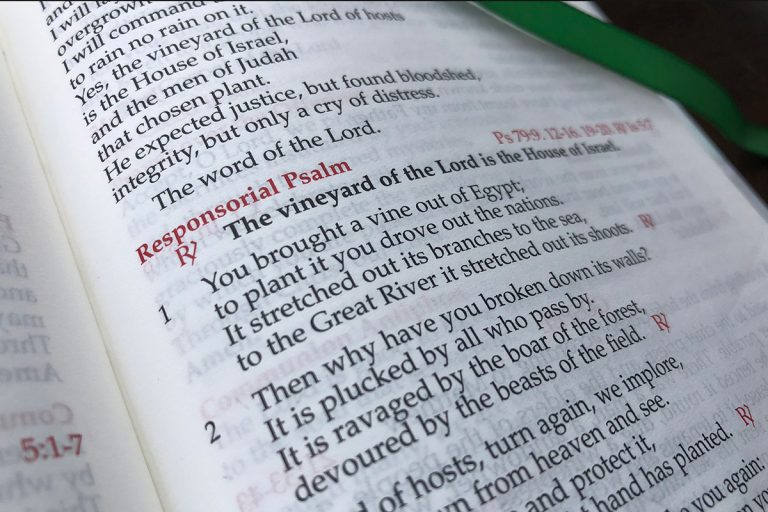 I will command
overgrown
to rain no rain on it.
Yes, the vineyard of the Lord of hosts
is the House of Israel,
and the men of Judah
that chosen plant.
He expected justice, but found bloodshed,
integrity, but only a cry of distress.
The word of the Lord.
Responsorial Psalm
Ps 79:9. 12-16. 19-20. ℟ Is 5:7
℟ The vineyard of the Lord is the House of Israel.
1 You brought a vine out of Egypt;
to plant it you drove out the nations.
It stretched out its branches to the sea,
to the Great River it stretched out its shoots. ℟
2 Then why have you broken down its walls?
It is plucked by all who pass by.
It is ravaged by the boar of the forest,
devoured by the beasts of the field. ℟
of hosts, turn again, we implore,
from heaven and see.
and protect it,
hand has planted. ℟
you again:
5:1-7